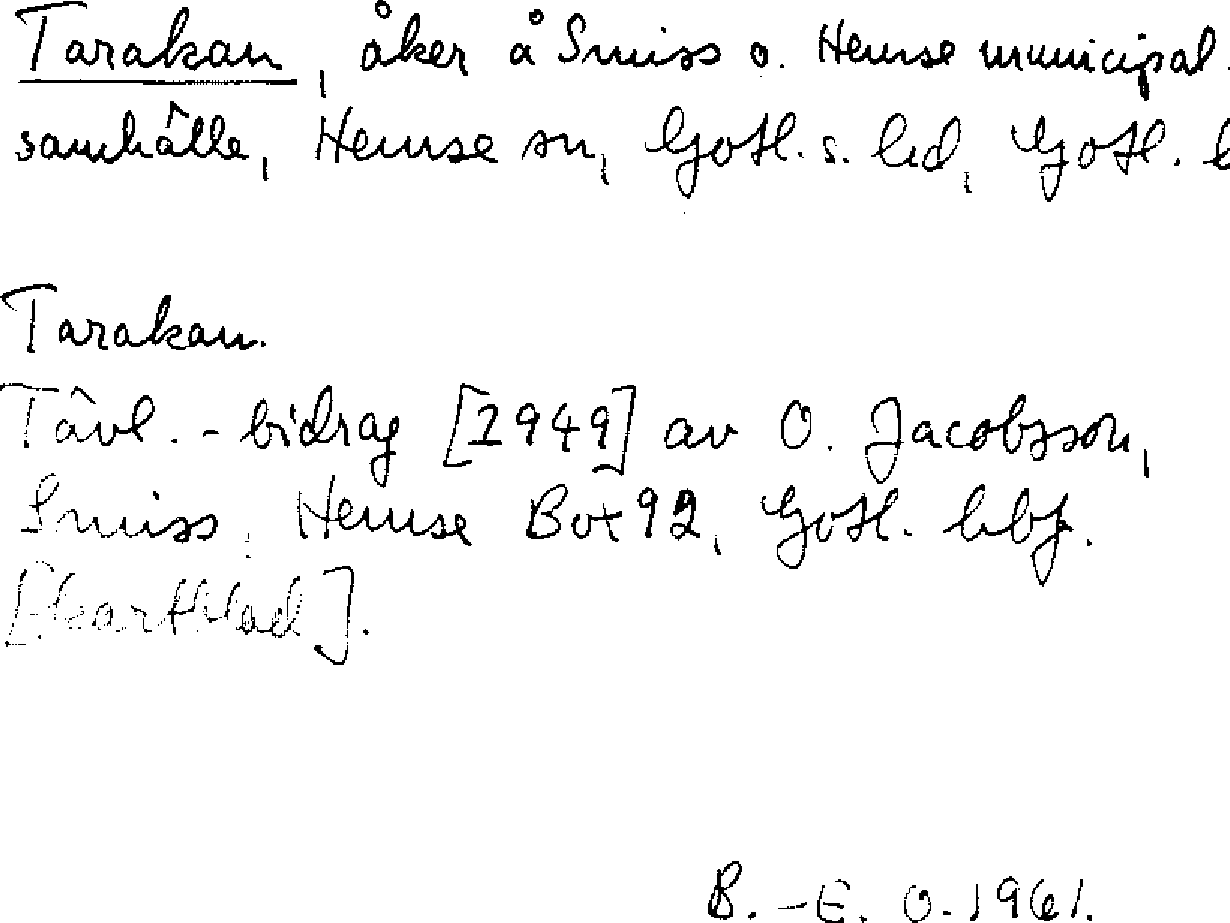 Tarakan, åker å Smiss o. Hemse municipal-
samhälle, Hemse sn, Gotl. s. hd, Gotl. l
Tarakan.
Tävl.-bidrag [1949] av O. Jacobsson,
Smiss, Hemse Box 92, Gotl. hbf.
B.-E. O. 1961.